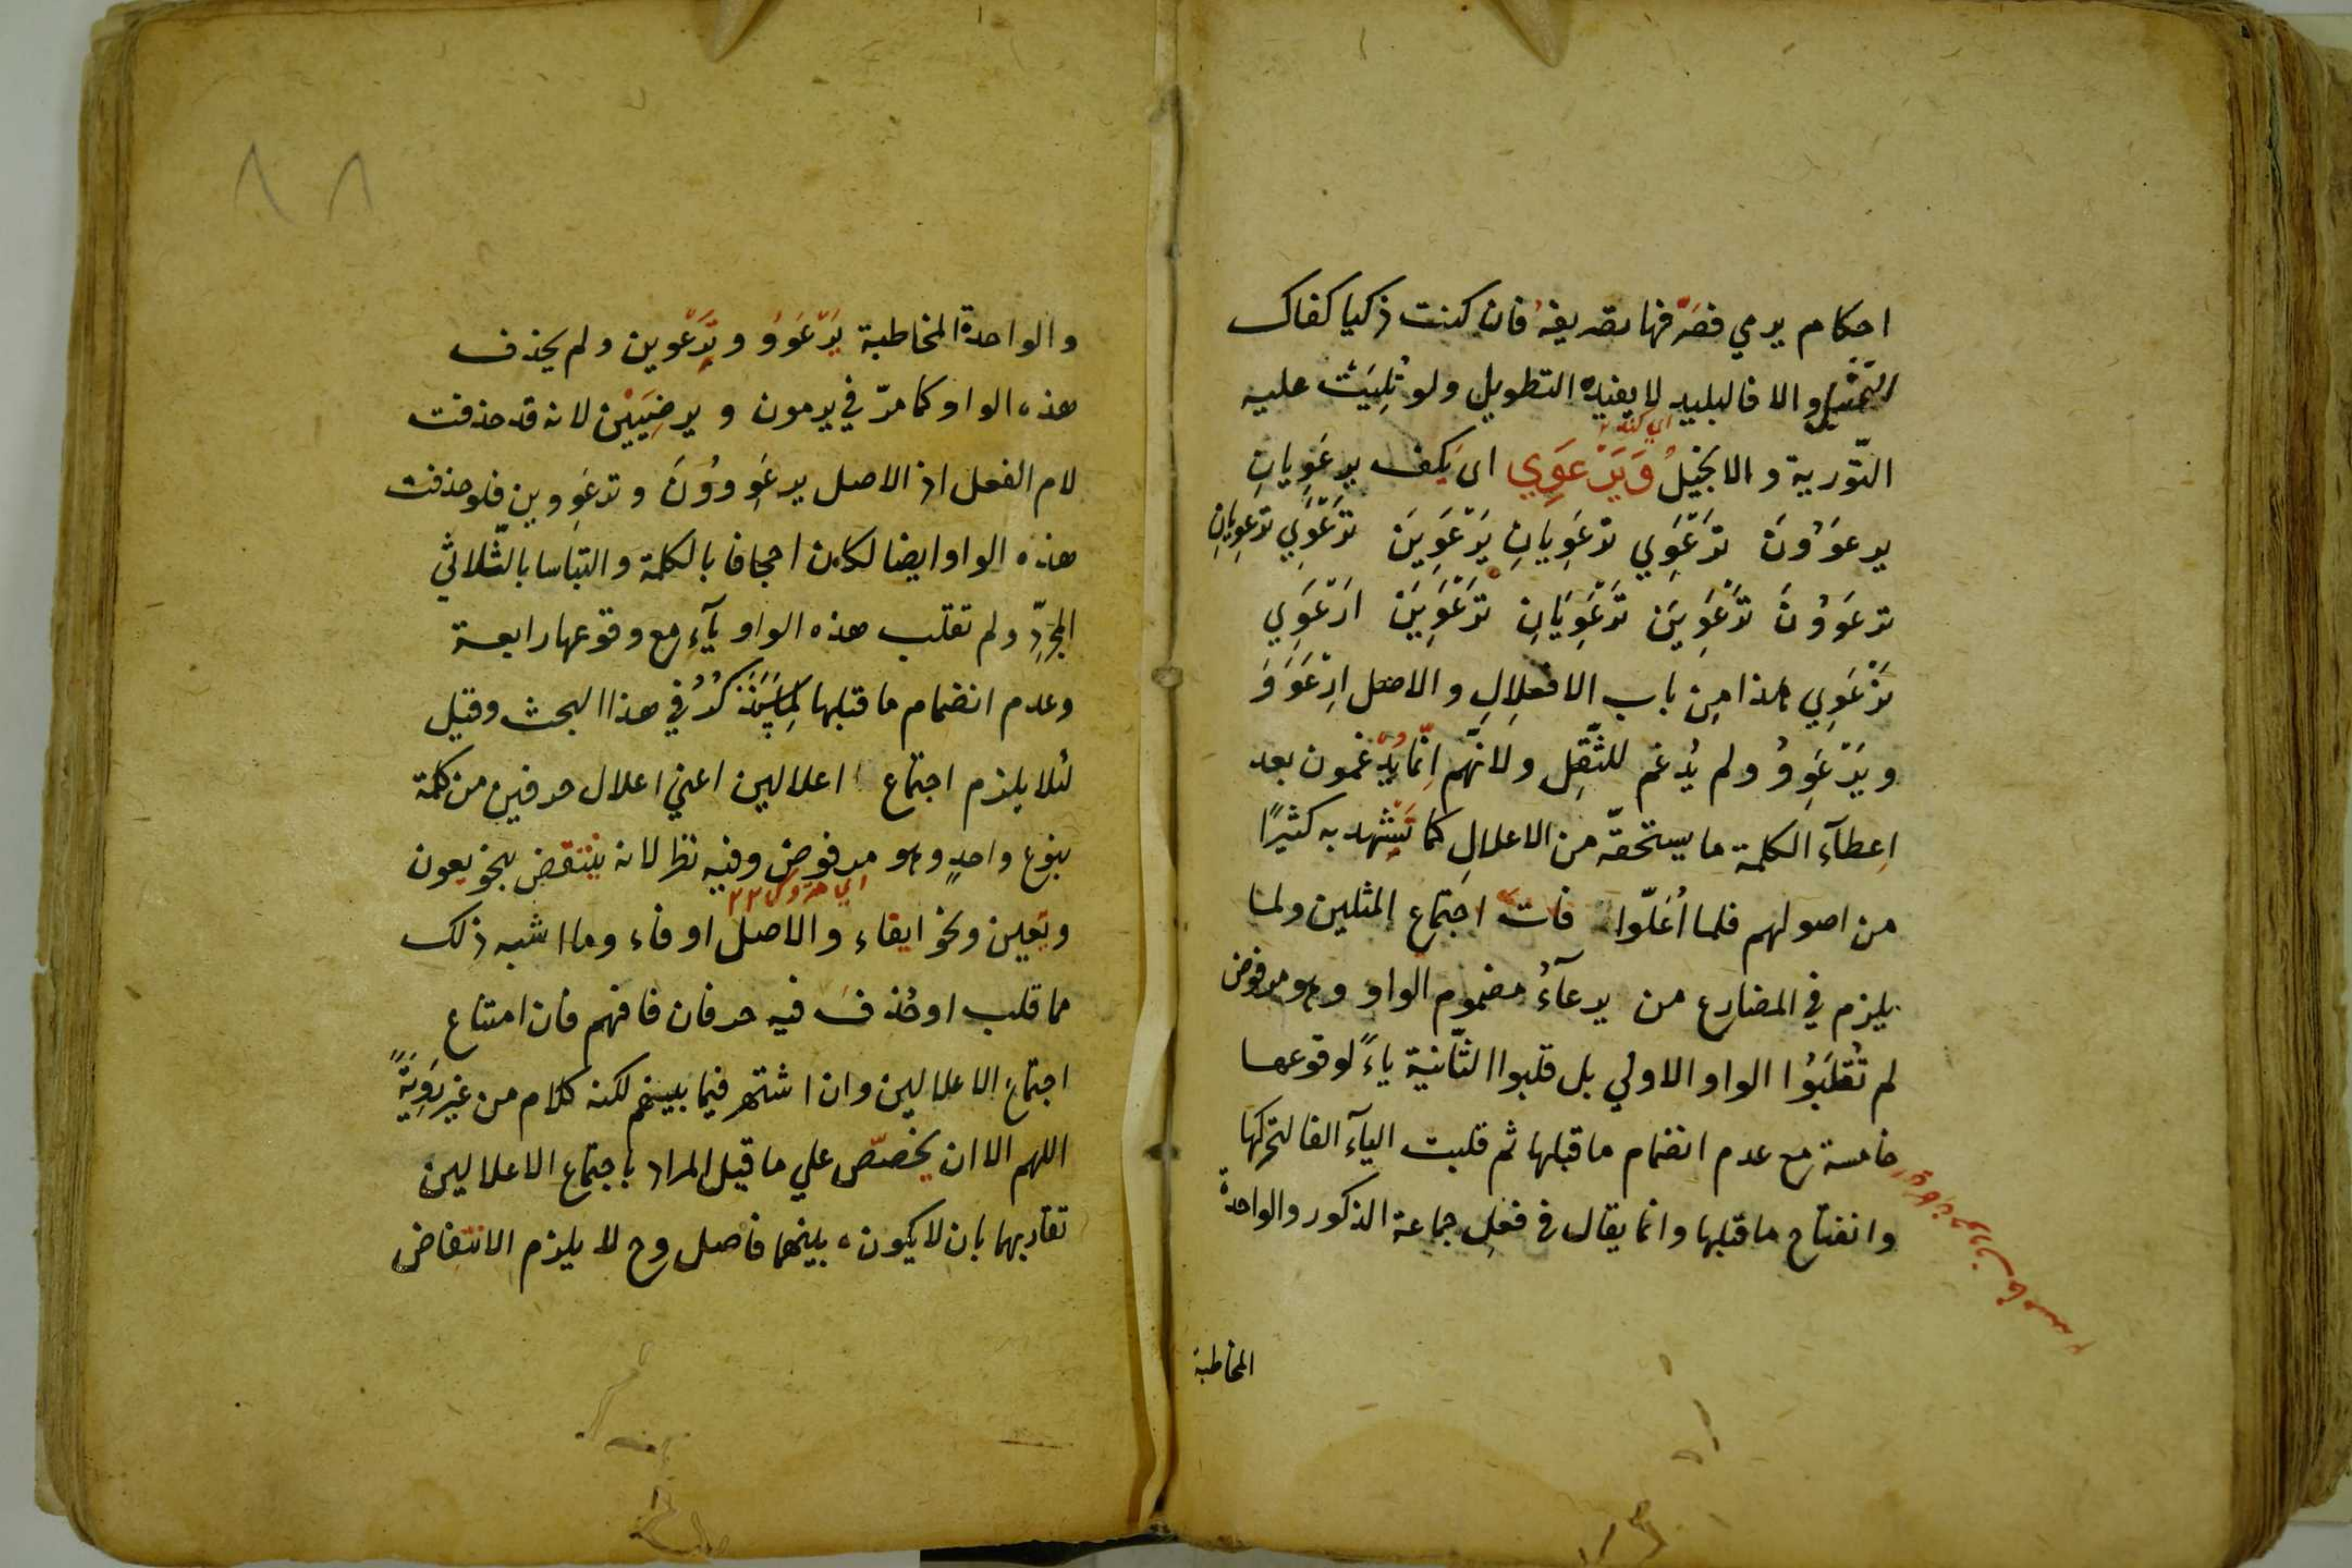 احكام يرمي فصرّفها تصريفه فان كنت ذكيا كفاك
التمثيل والا فالبليد لا يفيده التطويل ولو تُلِيَتْ عليه
التورية والانجيل وَيَرْعَوِي اى يكف يرعَوِيانِ
يرعَوُونَ ترعَوِي ترعَوِيانِ يَرْعَوِينَ ترعَوِي ترعويانِ
ترعَوُونَ تَرْعَوِينَ تَرْعَوِيَانِ تَرْعَوِينَ ارْعَوِي
نَرْعَوِي هذا من باب الافعلال والاصل ارْعَوَوَ
ويَرْعَوِوُ ولم يُدغم للثقل ولانهم انّما يُدغمون بعد
اعطآء الكلمة ما يستحقّه من الاعلال كما تشهد به كثيرًا
من اصولهم فلما اُعلّوا فات اجتماع المثلين ولما
يلزم في المضارع من يرعآوُ مضموم الواو وهو مرفوض
لم تُقلَبُوا الواو الاولي بل قلبوا الثّانية ياءً لوقوعها
خامسة مع عدم انضمام ما قبلها ثم قلبت اليآء الفا لتحركها
وانفتاح ما قبلها وانما يقال في فعل جماعة الذكور والواحدة
المخاطبة
٨٨
والواحدة المخاطبة يَرْعَوُو وتَرْعَوين ولم يحذف
هذه الواو كما مرّ في يرمون و يرضِيَيْن لانه قد حذفت
لام الفعل اذ الاصل يرعَوِوُونَ وترعَوِوين فلو حذفت
هذه الواو ايضا لكان اجحافا بالكلمة والتباسا بالثّلاثي
المجرّد ولم تقلب هذه الواو يآء مع وقوعها رابعة
وعدم انضمام ما قبلها لما سيذكر في هذا البحث وقيل
لئلا يلزم اجتماع اعلالين اعني اعلال حرفين من كلمة
بنوع واحدٍ وهو مرفوض وفيه نظر لانه ينتقض بنحو يعون
وتعين ونحو ايقاء والاصل اوقاء وما اشبه ذلك
مما قلب او حُذف فيه حرفان فافهم فان امتناع
اجتماع الاعلالين وان اشتهر فيما بينهم لكنه كلام من غير رَوِيَّةً
اللهم الا ان يخصّص علي ما قيل المراد باجتماع الاعلالين
تقاربهما بان لا يكون بينهما فاصل وح لا يلزم الانتقاض